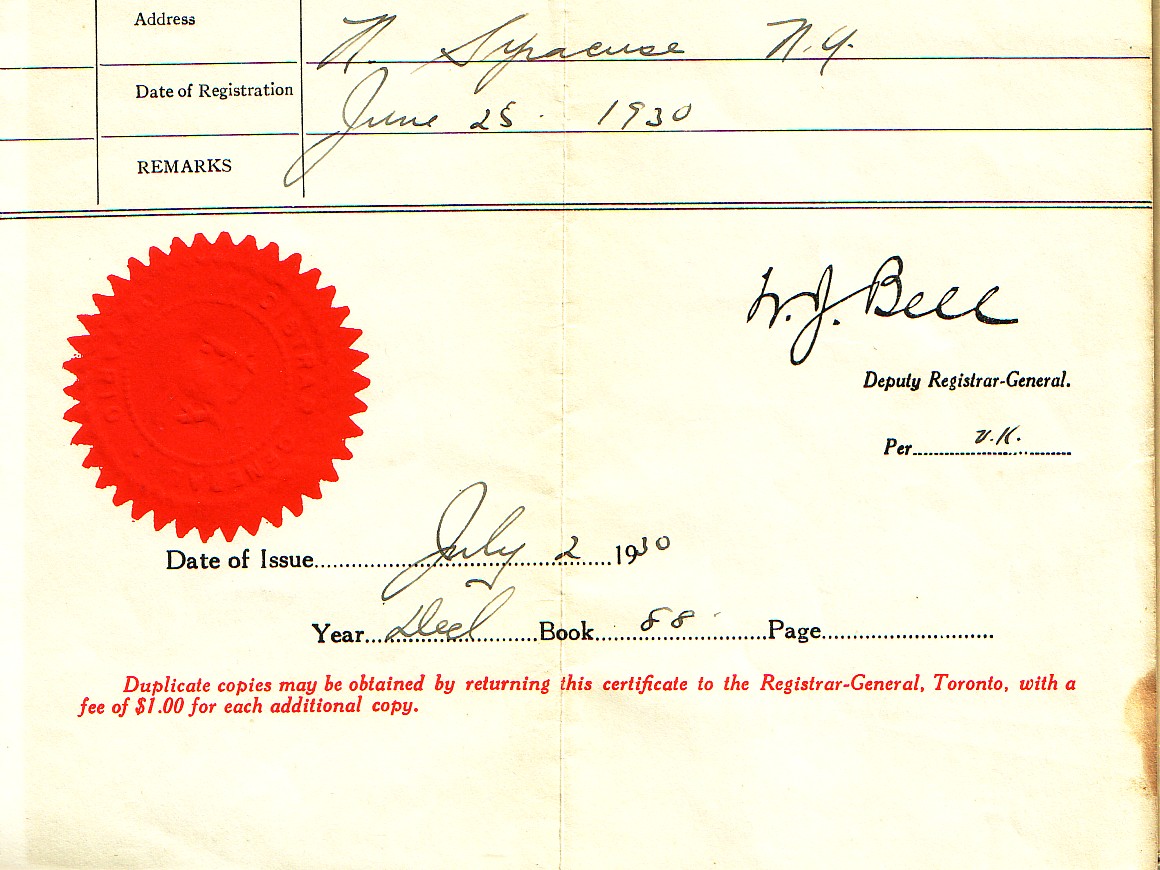 Address N. Syracuse N.Y.
Date of Registration June 25. 1930
REMARKS
W. J. Bell
Deputy Registrar-General.
Per V.K.
Date of Issue July 2 1930
Year Book 88 Page
Duplicate copies may be obtained by returning this certificate to the Registrar-General, Toronto, with a
fee of $1.00 for each additional copy.